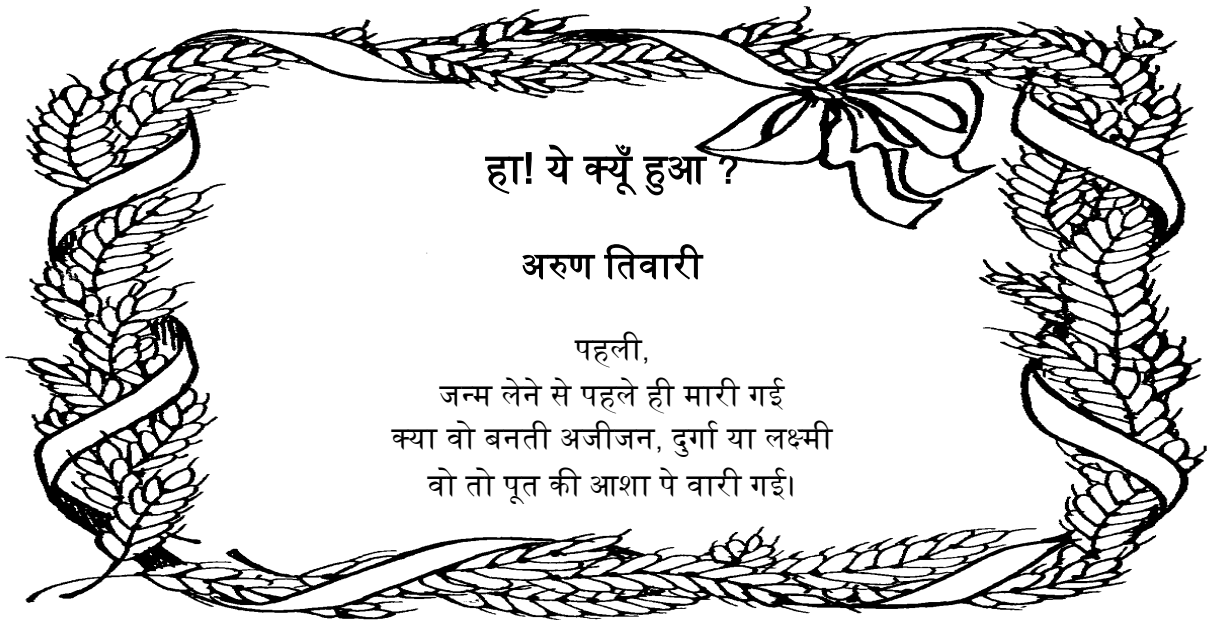 हा! ये क्यूँ हुआ ?
अरुण तिवारी
पहली,
जन्म लेने से पहले ही मारी गई
क्या वो बनती अजीजन, दुर्गा या लक्ष्मी
वो तो पूत की आशा पे वारी गई।